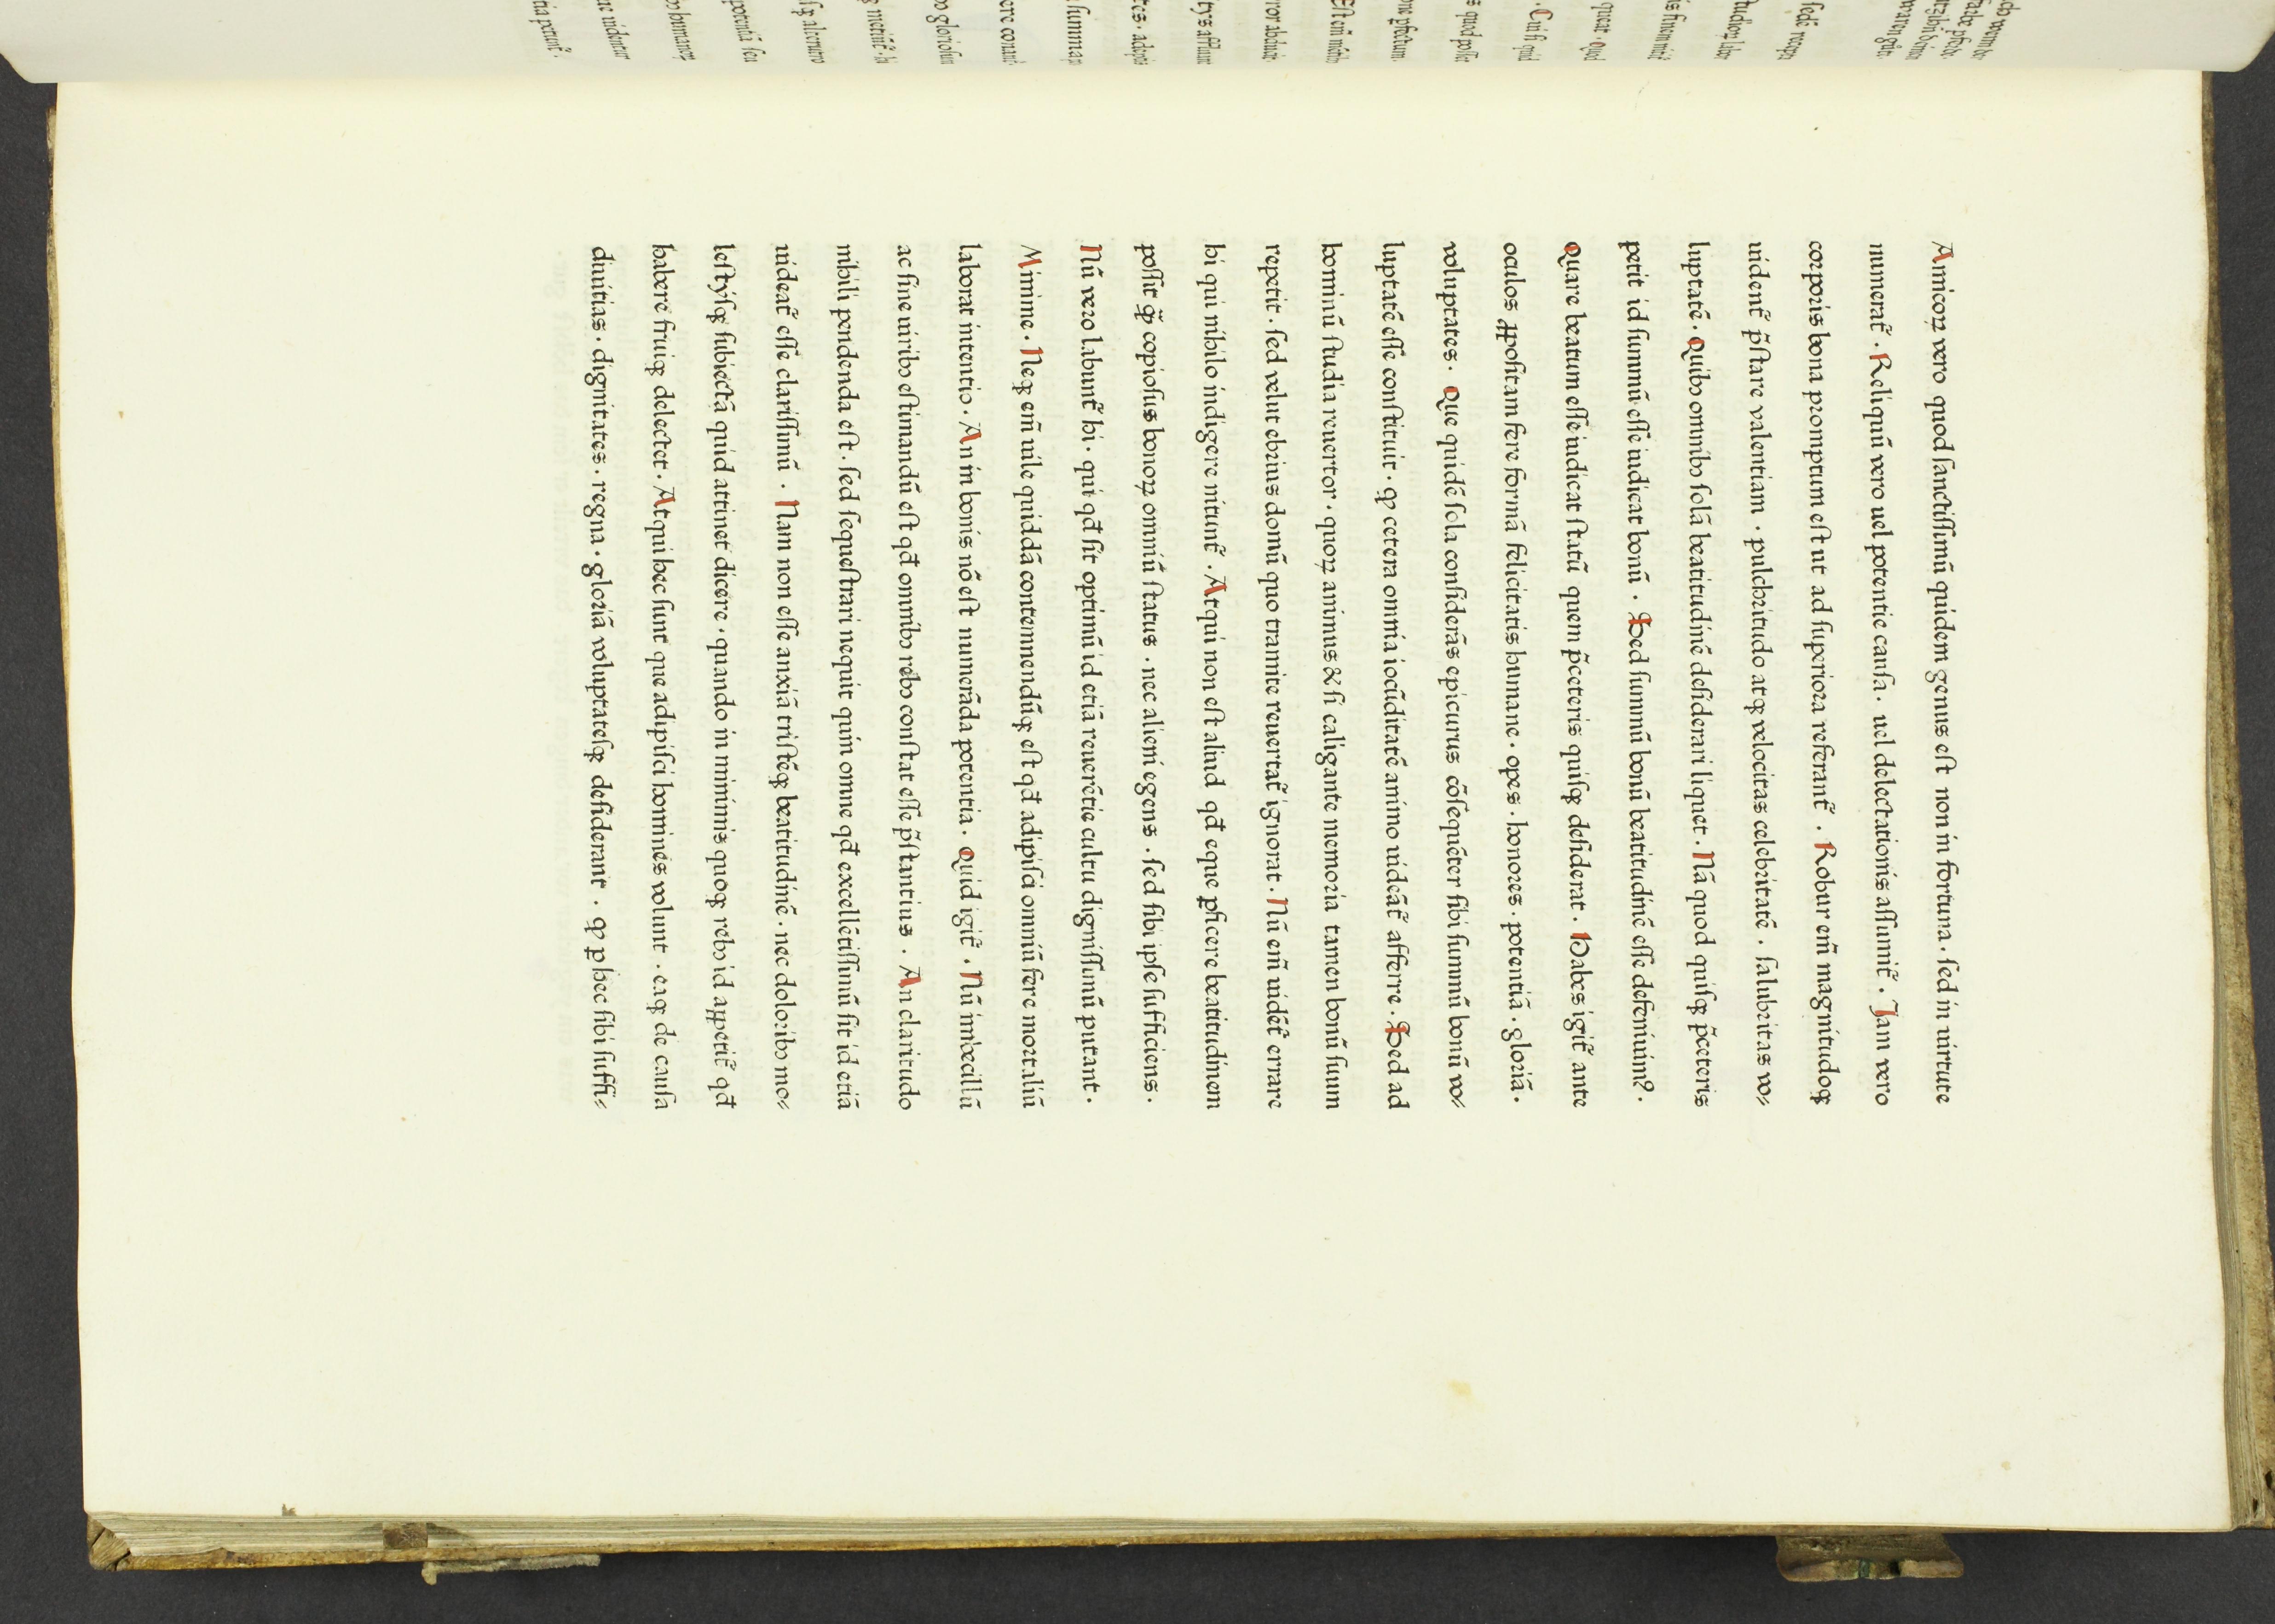 Amicoꝝ vero quod ſanctiſſimū quidem genus eſt non in fortuna · ſed in uirtute
numerat᷑ · Reliquū vero uel potentie cauſa · uel delectationis aſſumit᷑ · Jam vero
corporis bona promptum eſt ut ad ſuperiora referant᷑ · Robur em̄ magnitudoqꝫ
uident᷑ p̄ſtare valentiam · pulchritudo atqꝫ velocitas celebritatē · ſalubritas vo⸗
luptatē · Quibꝫ omnibꝫ ſolā beatitudinē deſiderari liquet · Nā quod quiſqꝫ p̄ceteris
petit id ſummū eſſe iudicat bonū · Sed ſummū bonū beatitudinē eſſe defeniuimꝰ ·
Quare beatum eſſe iudicat ſtatū quem p̄ceteris quiſqꝫ deſiderat · Habes igit᷑ ante
oculos ꝓpoſitam fere formā felicitatis humane · opes · honores · potentiā · gloriā ·
voluptates · Que quidē ſola conſiderās epicurus cōſequēter ſibi ſummū bonū vo⸗
luptatē eſſe conſtituit · ꝙ cetera omnia iocūditatē animo uideāt᷑ afferre · Sed ad
hominū ſtudia reuertor · quoꝝ animus & ſi caligante memoria tamen bonū ſuum
repetit · ſed velut ebrius domū quo tramite reuertat᷑ ignorat · Nū em̄ uidēt᷑ errare
hi qui nihilo indigere nitunt᷑ · Atqui non eſt aliud qđ eque ꝑficere beatitudinem
poſſit ꝙ̄ copioſus bonoꝝ omniū ſtatus · nec alieni egens · ſed ſibi ipſe ſufficiens ·
Nū vero labunt᷑ hi · qui qđ ſit optimū id etiā reuerētie cultu digniſſimū putant ·
Minime · Neqꝫ em̄ uile quiddā contemnendūqꝫ eſt qđ adipiſci omniū fere mortaliū
laborat intentio · An in bonis nō eſt numerāda potentia · Quid igit᷑ · Nū imbecillū
ac ſine uiribꝫ eſtimandū eſt qđ omnibꝫ rebꝫ conſtat eſſe p̄ſtantius · An claritudo
nihili pendenda eſt · ſed ſequeſtrari nequit quin omne qđ excellētiſſimū ſit id etiā
uideat᷑ eſſe clariſſimū · Nam non eſſe anxiā triſtēqꝫ beatitudinē · nec doloribꝫ mo⸗
leſtijſqꝫ ſubiectā quid attinet dicere · quando in minimis quoqꝫ rebꝫ id appetit᷑ qđ
habere fruiqꝫ delectet · Atqui hec ſunt que adipiſci homines volunt · eaqꝫ de cauſa
diuitias · dignitates · regna · gloriā voluptateſqꝫ deſiderant · ꝙ ꝑ hec ſibi ſuffi⸗